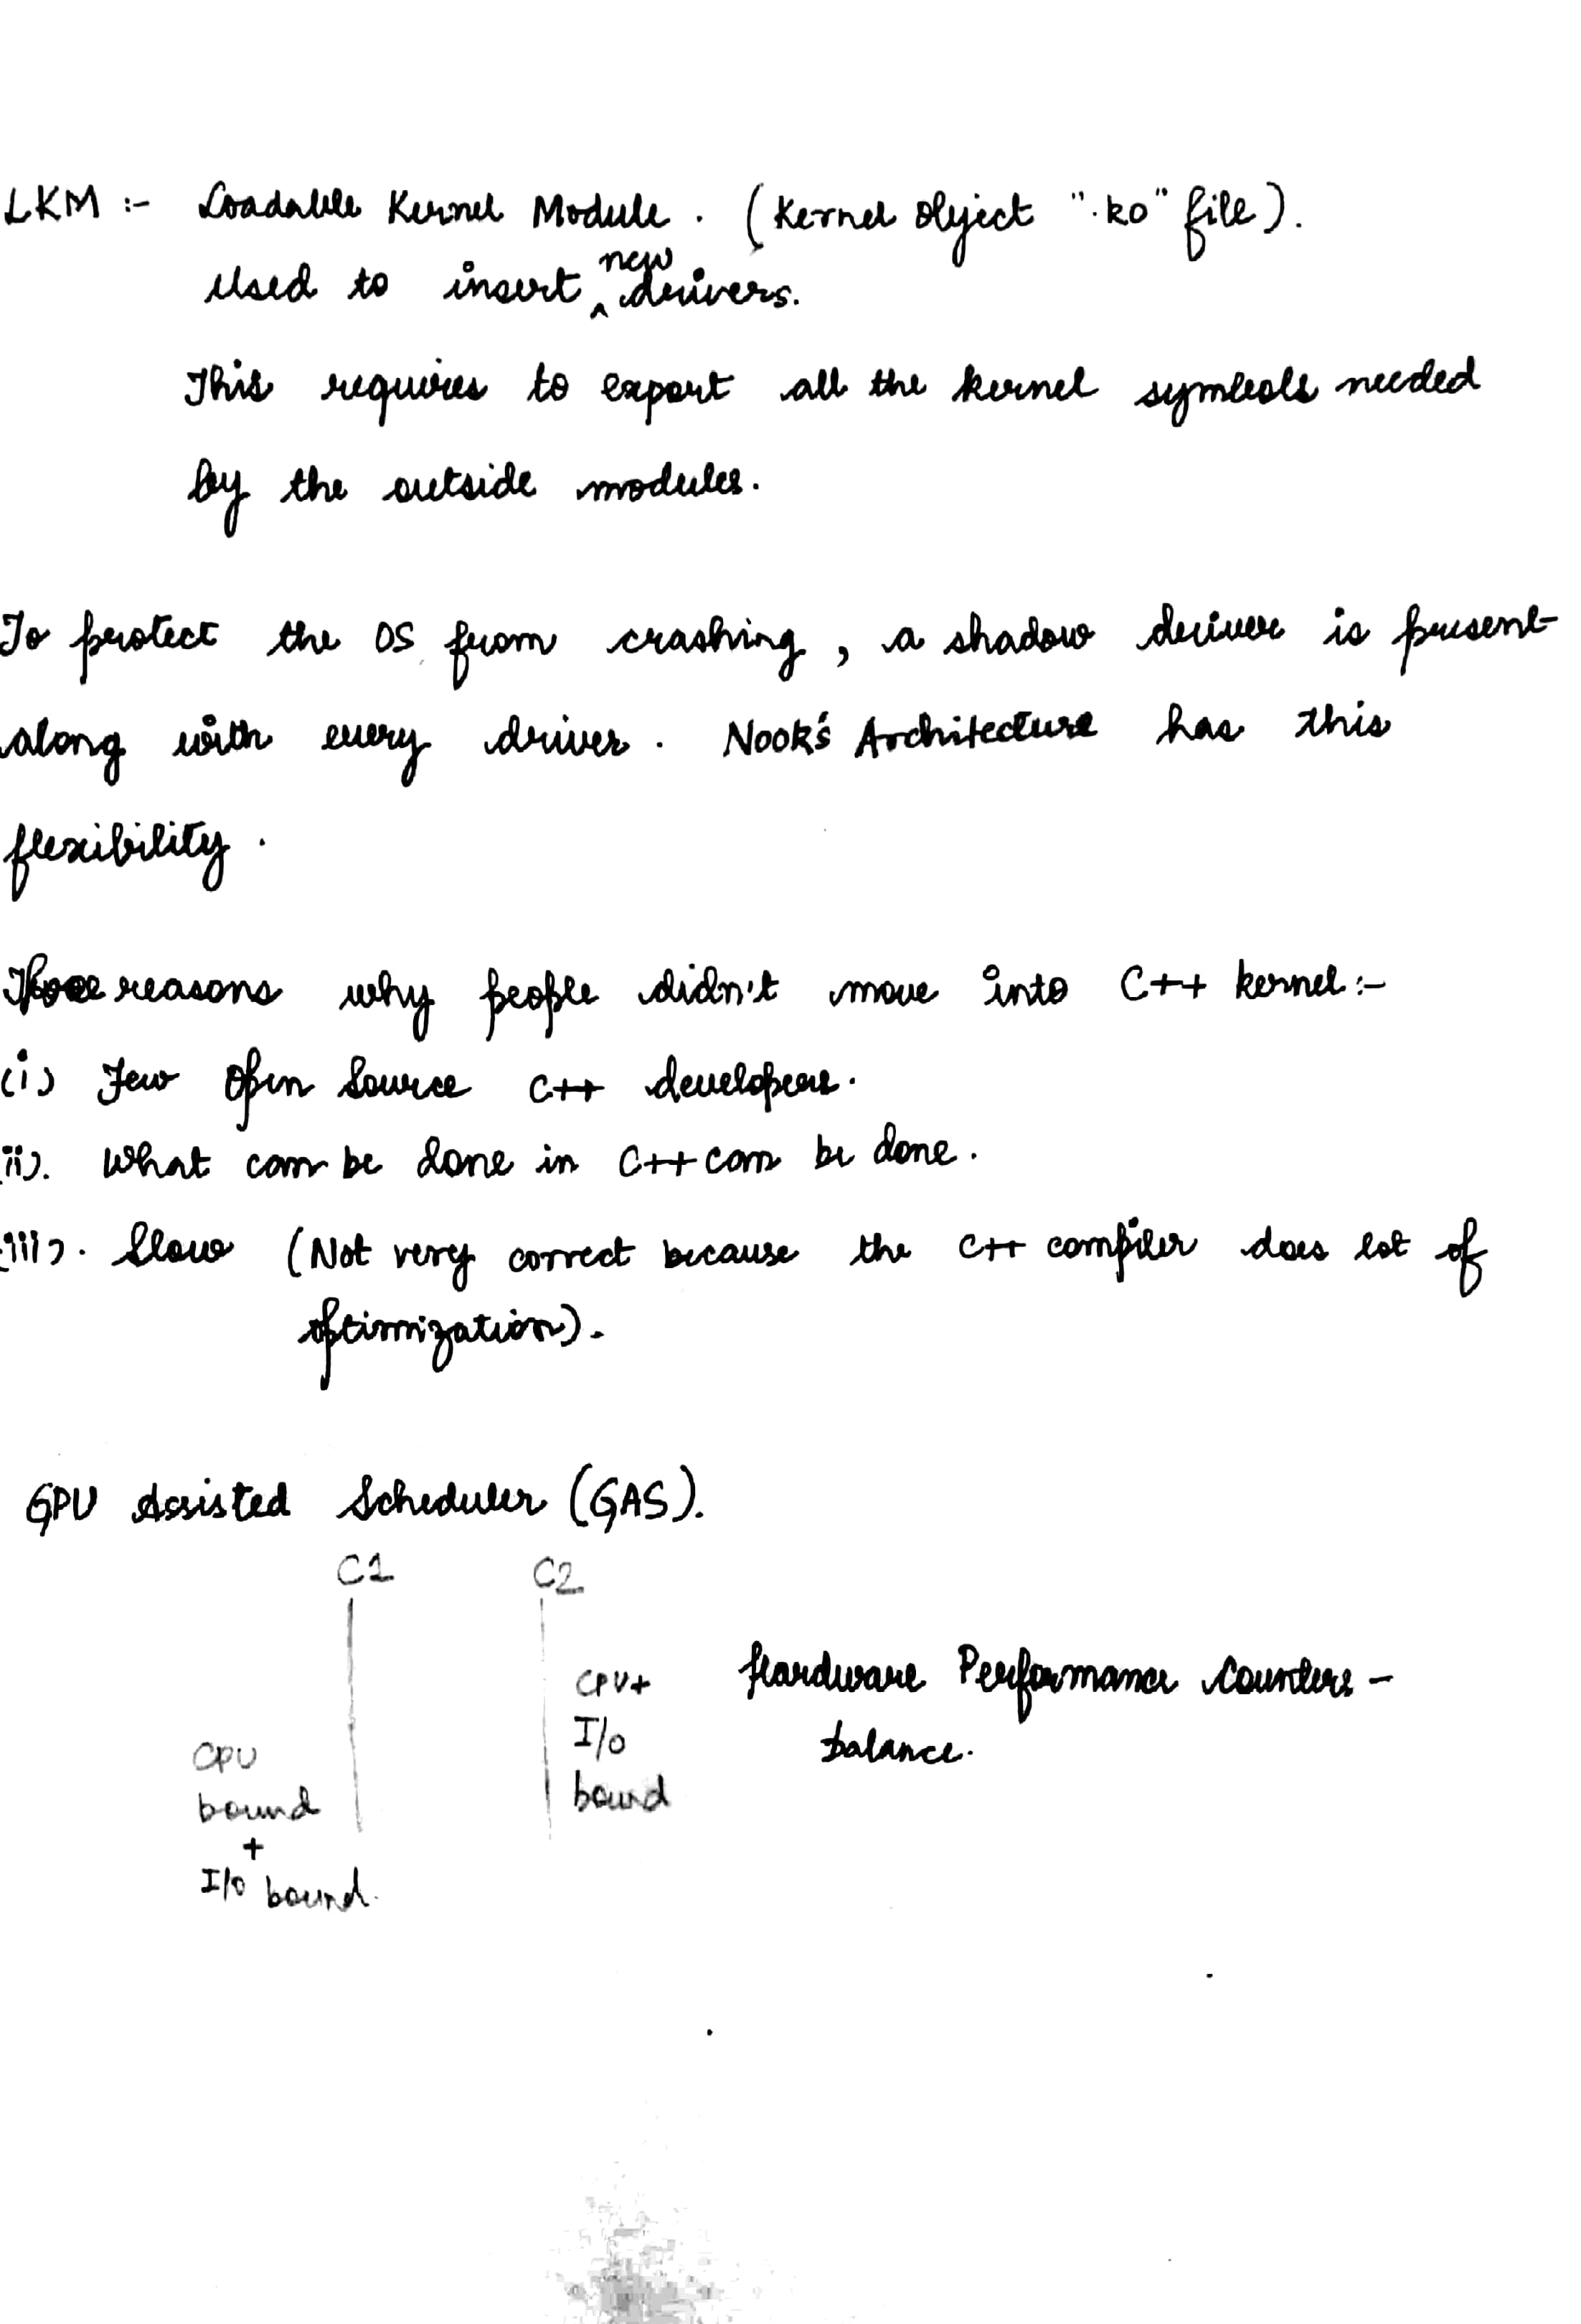 LKM :- Loadable Kernel Module. (Kernel Object ".ko" file).
Used to insert new drivers.
This requires to export all the kernel symbols needed
by the outside modules.
To protect the OS from crashing, a shadow driver is present
along with every driver. Nook's Architecture has this
flexibility.
reasons why people didn't move into C++ kernel:-
(i) Few Open Source C++ developers.
(ii). What can be done in C++ can be done.
(iii). Slow (Not very correct because the C++ compiler does lot of
optimization).
GPU Assisted Scheduler (GAS).
C1 C2
CPU+ Hardware Performance Counters -
I/O balance.
CPU
bound bound
+
I/O bound.